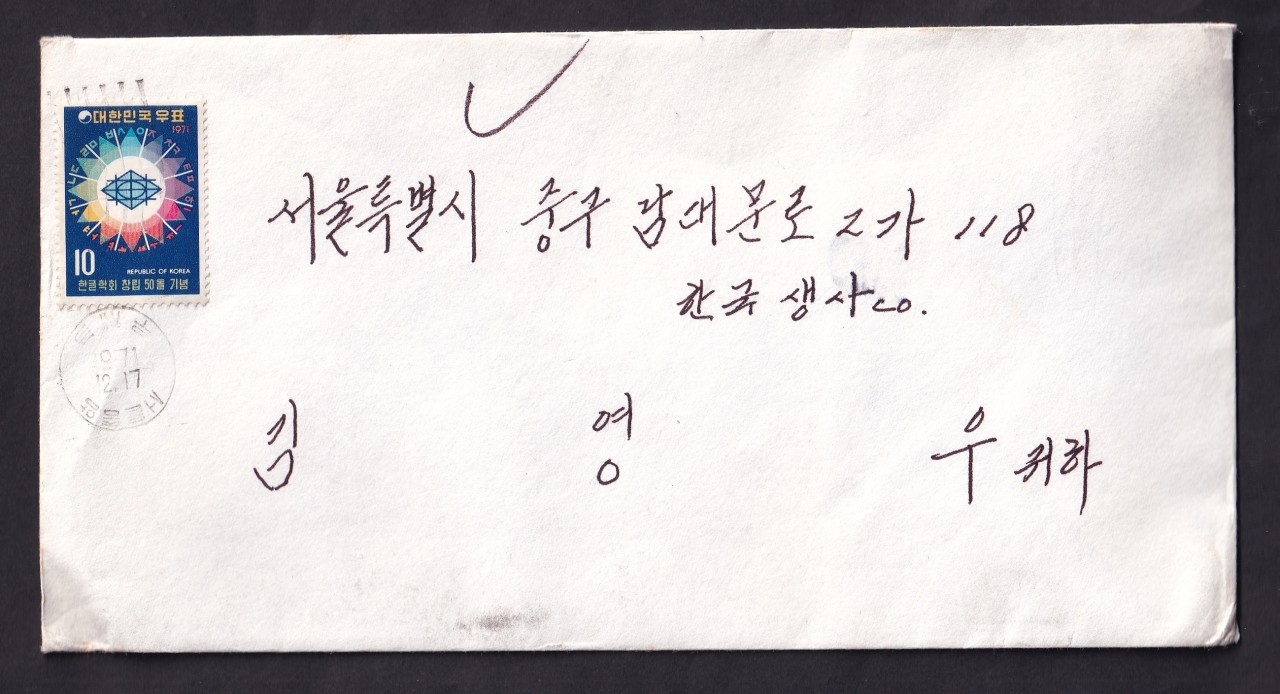 대한민국우표
1971
10
REPUBLIC OF KOREA
한글학회 창립 50돌 기념
1971
12.17
서울특별시 중구 남대문로 2가 118
한국 생사co.
김 영 우 귀하